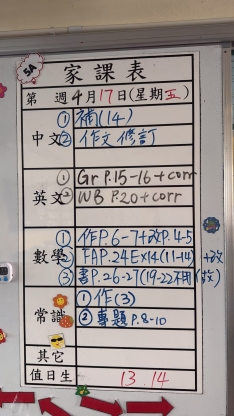 5A
家課表
第 週 4月17日(星期五)
中文 ① 補(14)
② 作文 修訂
英文 ① Gr P.15-16 + corr
② WB P.20 + corr
數學 ① 作P.6-7+改P.4-5
② FAP.24Ex14(11-14)+改
③ 書P.26-27(19-22不用)(改)
常識 ① 作(3)
② 專題P.8-10
其它
值日生 13.14